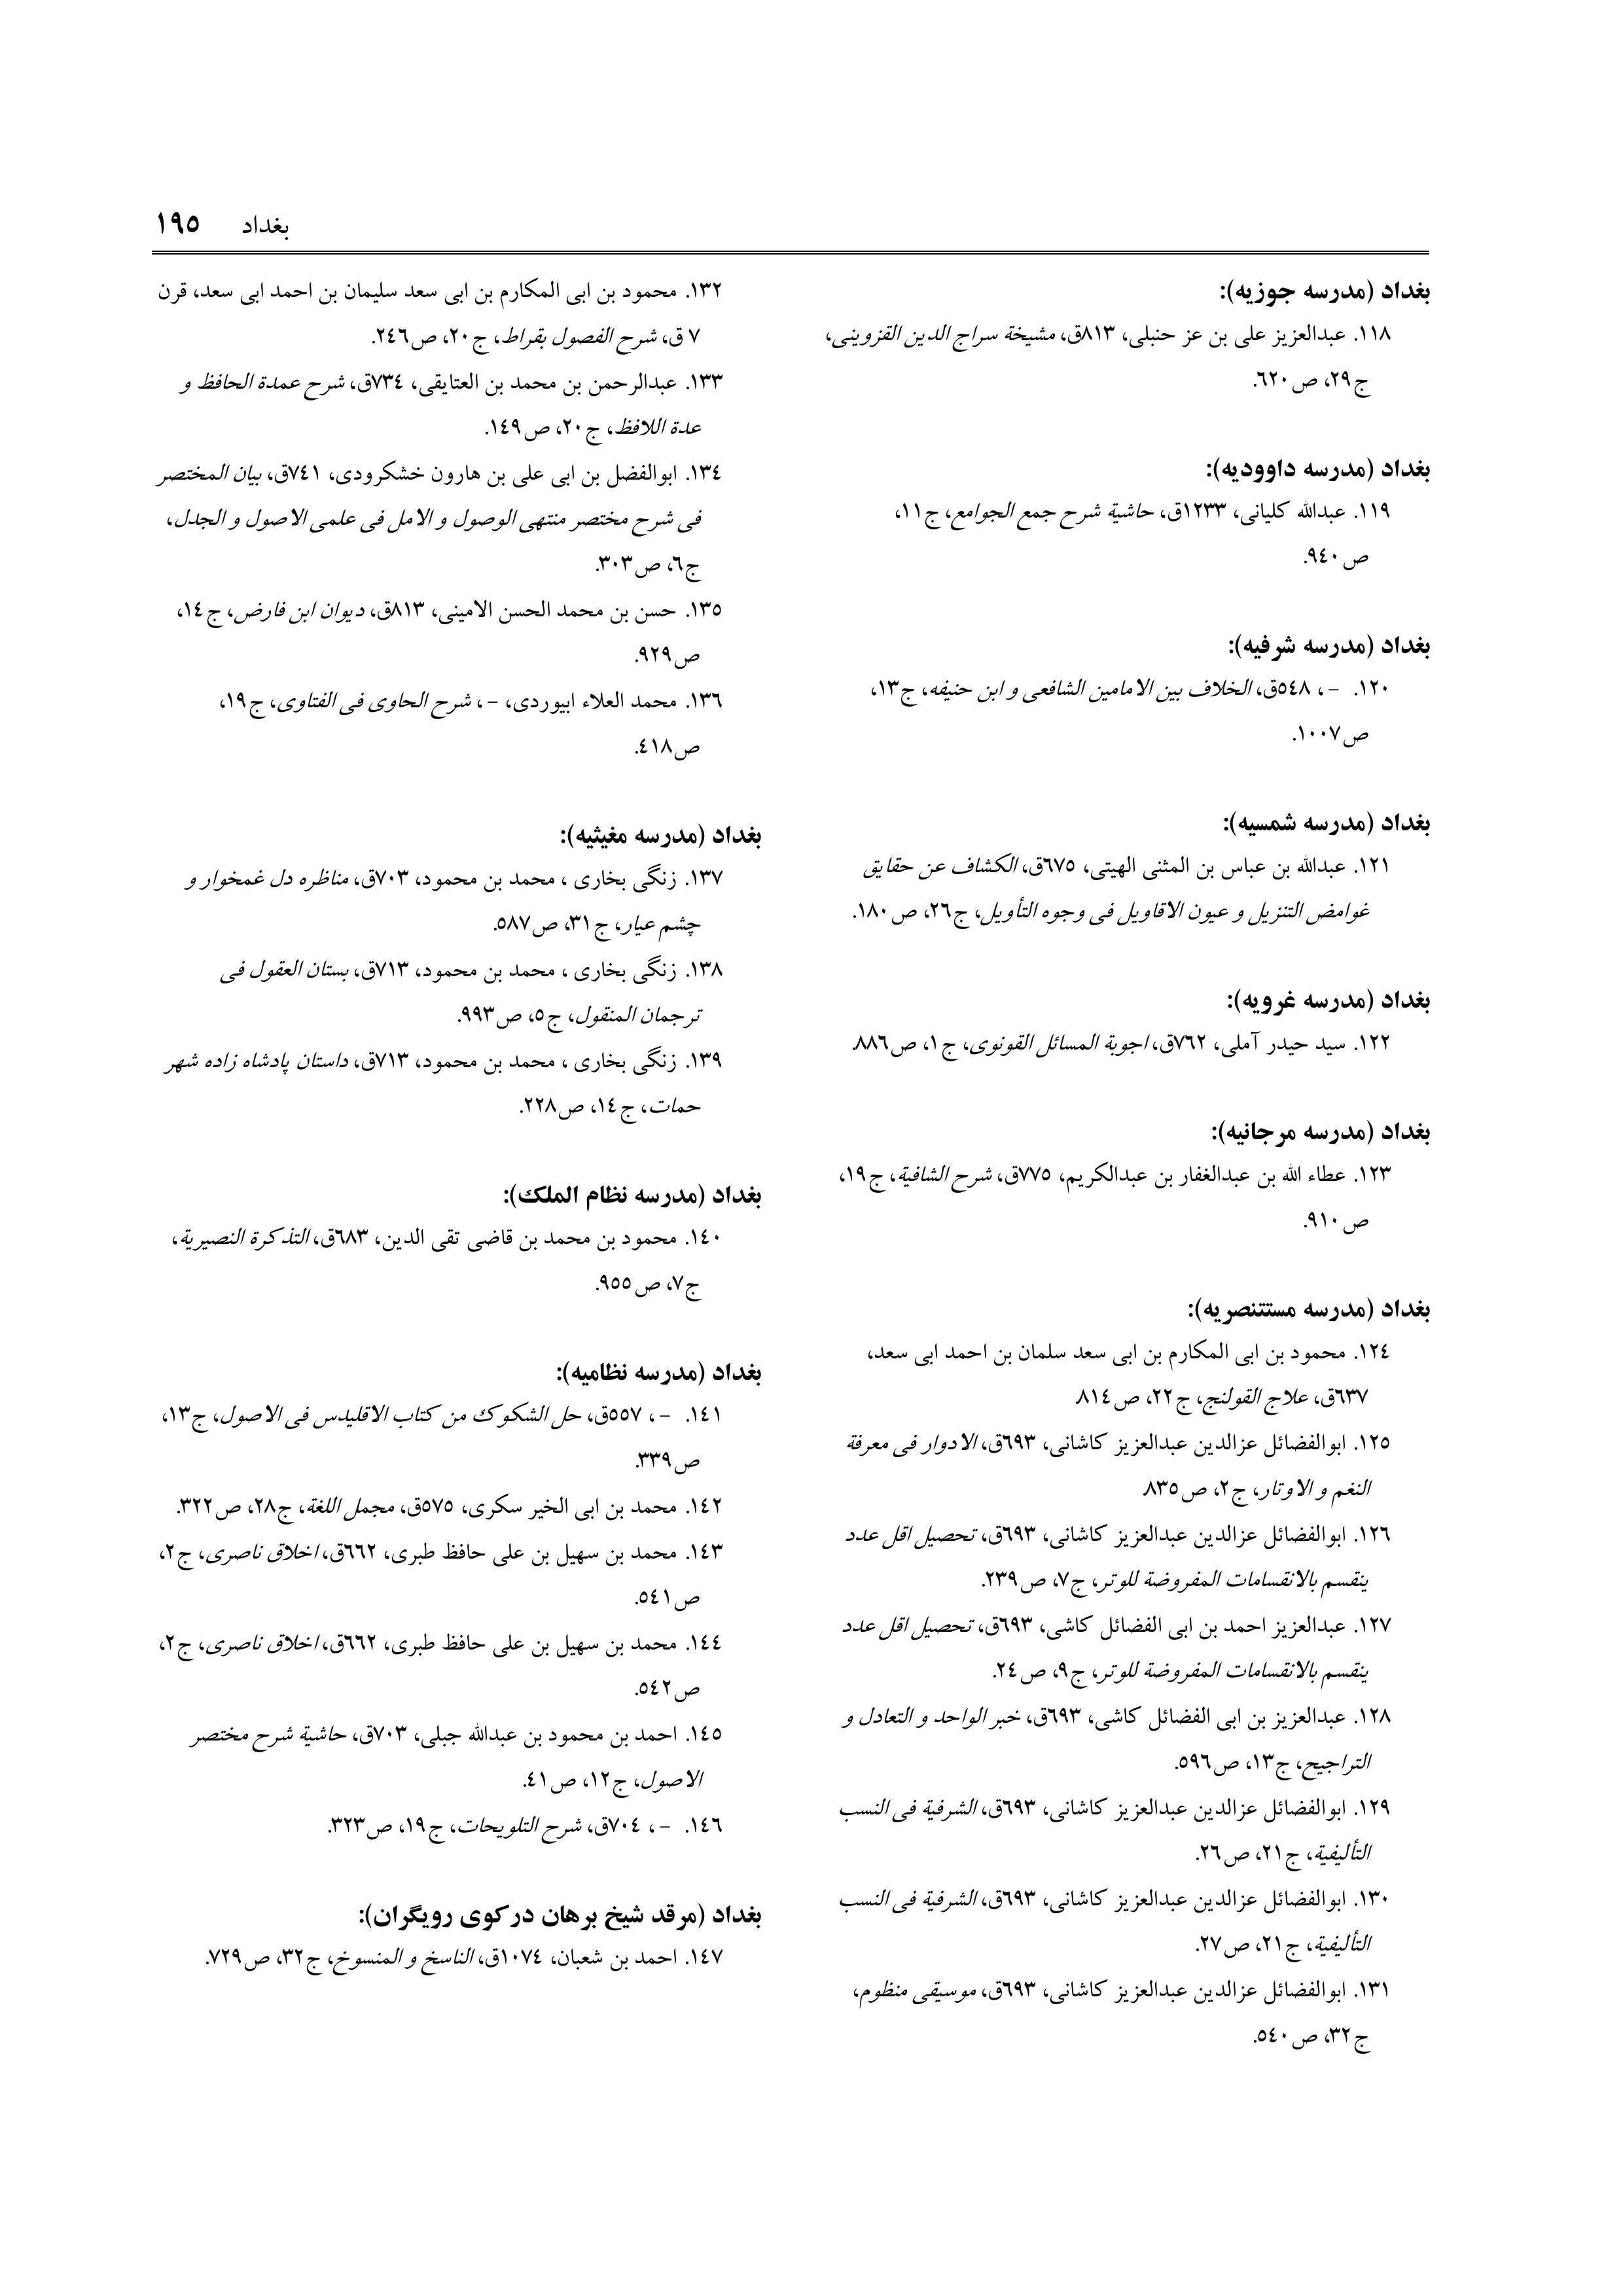 بغداد ١٩٥
بغداد (مدرسه جوزیه):
١١٨. عبدالعزیز علی بن عز حنبلی، ٨١٣ق، مشیخة سراج الدین القزوینی،
ج٢٩، ص٦٢٠.
بغداد (مدرسه داوودیه):
١١٩. عبدالله کلیانی، ١٢٣٣ق، حاشیة شرح جمع الجوامع، ج١١،
ص٩٤٠.
بغداد (مدرسه شرفیه):
١٢٠. -، ٥٤٨ق، الخلاف بین الامامین الشافعی و ابن حنیفه، ج١٣،
ص١٠٠٧.
بغداد (مدرسه شمسیه):
١٢١. عبدالله بن عباس بن المثنی الهیتی، ٦٧٥ق، الکشاف عن حقایق
غوامض التنزیل و عیون الاقاویل فی وجوه التأویل، ج٢٦، ص١٨٠.
بغداد (مدرسه غرویه):
١٢٢. سید حیدر آملی، ٧٦٢ق، اجوبة المسائل القونوی، ج١، ص٨٨٦.
بغداد (مدرسه مرجانیه):
١٢٣. عطاء الله بن عبدالغفار بن عبدالکریم، ٧٧٥ق، شرح الشافیة، ج١٩،
ص٩١٠.
بغداد (مدرسه مستتنصریه):
١٢٤. محمود بن ابی المکارم بن ابی سعد سلمان بن احمد ابی سعد،
٦٣٧ق، علاج القولنج، ج٢٢، ص٨١٤.
١٢٥. ابوالفضائل عزالدین عبدالعزیز کاشانی، ٦٩٣ق، الادوار فی معرفة
النغم و الاوتار، ج٢، ص٨٣٥.
١٢٦. ابوالفضائل عزالدین عبدالعزیز کاشانی، ٦٩٣ق، تحصیل اقل عدد
ینقسم بالانقسامات المفروضة للوتر، ج٧، ص٢٣٩.
١٢٧. عبدالعزیز احمد بن ابی الفضائل کاشی، ٦٩٣ق، تحصیل اقل عدد
ینقسم بالانقسامات المفروضة للوتر، ج٩، ص٢٤.
١٢٨. عبدالعزیز بن ابی الفضائل کاشی، ٦٩٣ق، خبر الواحد و التعادل و
التراجیح، ج١٣، ص٥٩٦.
١٢٩. ابوالفضائل عزالدین عبدالعزیز کاشانی، ٦٩٣ق، الشرفیة فی النسب
التألیفیة، ج٢١، ص٢٦.
١٣٠. ابوالفضائل عزالدین عبدالعزیز کاشانی، ٦٩٣ق، الشرفیة فی النسب
التألیفیة، ج٢١، ص٢٧.
١٣١. ابوالفضائل عزالدین عبدالعزیز کاشانی، ٦٩٣ق، موسیقی منظوم،
ج٣٢، ص٥٤٠.
١٣٢. محمود بن ابی المکارم بن ابی سعد سلیمان بن احمد ابی سعد، قرن
٧ ق، شرح الفصول بقراط، ج٢٠، ص٢٤٦.
١٣٣. عبدالرحمن بن محمد بن العتایقی، ٧٣٤ق، شرح عمدة الحافظ و
عدة اللافظ، ج٢٠، ص١٤٩.
١٣٤. ابوالفضل بن ابی علی بن هارون خشکرودی، ٧٤١ق، بیان المختصر
فی شرح مختصر منتهی الوصول و الامل فی علمی الاصول و الجدل،
ج٦، ص٣٠٣.
١٣٥. حسن بن محمد الحسن الامینی، ٨١٣ق، دیوان ابن فارض، ج١٤،
ص٩٢٩.
١٣٦. محمد العلاء ابیوردی، -، شرح الحاوی فی الفتاوی، ج١٩،
ص٤١٨.
بغداد (مدرسه مغیثیه):
١٣٧. زنگی بخاری ، محمد بن محمود، ٧٠٣ق، مناظره دل غمخوار و
چشم عیار، ج٣١، ص٥٨٧.
١٣٨. زنگی بخاری ، محمد بن محمود، ٧١٣ق، بستان العقول فی
ترجمان المنقول، ج٥، ص٩٩٣.
١٣٩. زنگی بخاری ، محمد بن محمود، ٧١٣ق، داستان پادشاه زاده شهر
حمات، ج١٤، ص٢٢٨.
بغداد (مدرسه نظام الملک):
١٤٠. محمود بن محمد بن قاضی تقی الدین، ٦٨٣ق، التذکرة النصیریة،
ج٧، ص٩٥٥.
بغداد (مدرسه نظامیه):
١٤١. -، ٥٥٧ق، حل الشکوک من کتاب الاقلیدس فی الاصول، ج١٣،
ص٣٣٩.
١٤٢. محمد بن ابی الخیر سکری، ٥٧٥ق، مجمل اللغة، ج٢٨، ص٣٢٢.
١٤٣. محمد بن سهیل بن علی حافظ طبری، ٦٦٢ق، اخلاق ناصری، ج٢،
ص٥٤١.
١٤٤. محمد بن سهیل بن علی حافظ طبری، ٦٦٢ق، اخلاق ناصری، ج٢،
ص٥٤٢.
١٤٥. احمد بن محمود بن عبدالله جبلی، ٧٠٣ق، حاشیة شرح مختصر
الاصول، ج١٢، ص٤١.
١٤٦. -، ٧٠٤ق، شرح التلویحات، ج١٩، ص٣٢٣.
بغداد (مرقد شیخ برهان در کوی رویگران):
١٤٧. احمد بن شعبان، ١٠٧٤ق، الناسخ و المنسوخ، ج٣٢، ص٧٢٩.